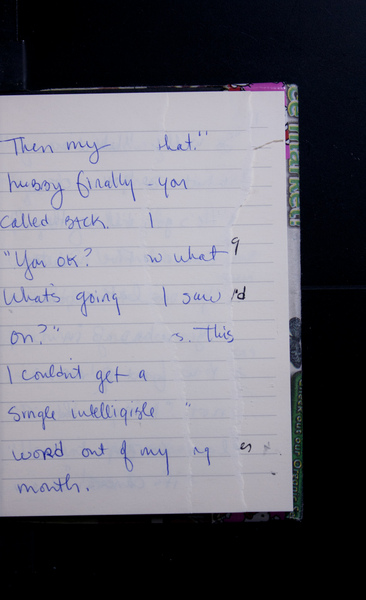 Then my that."
hubby finally - you
called back. I
"You OK? w what g
What's going I saw rd
on?" s. This
I couldn't get a
single intelligible "
word out of my ng es
mouth.